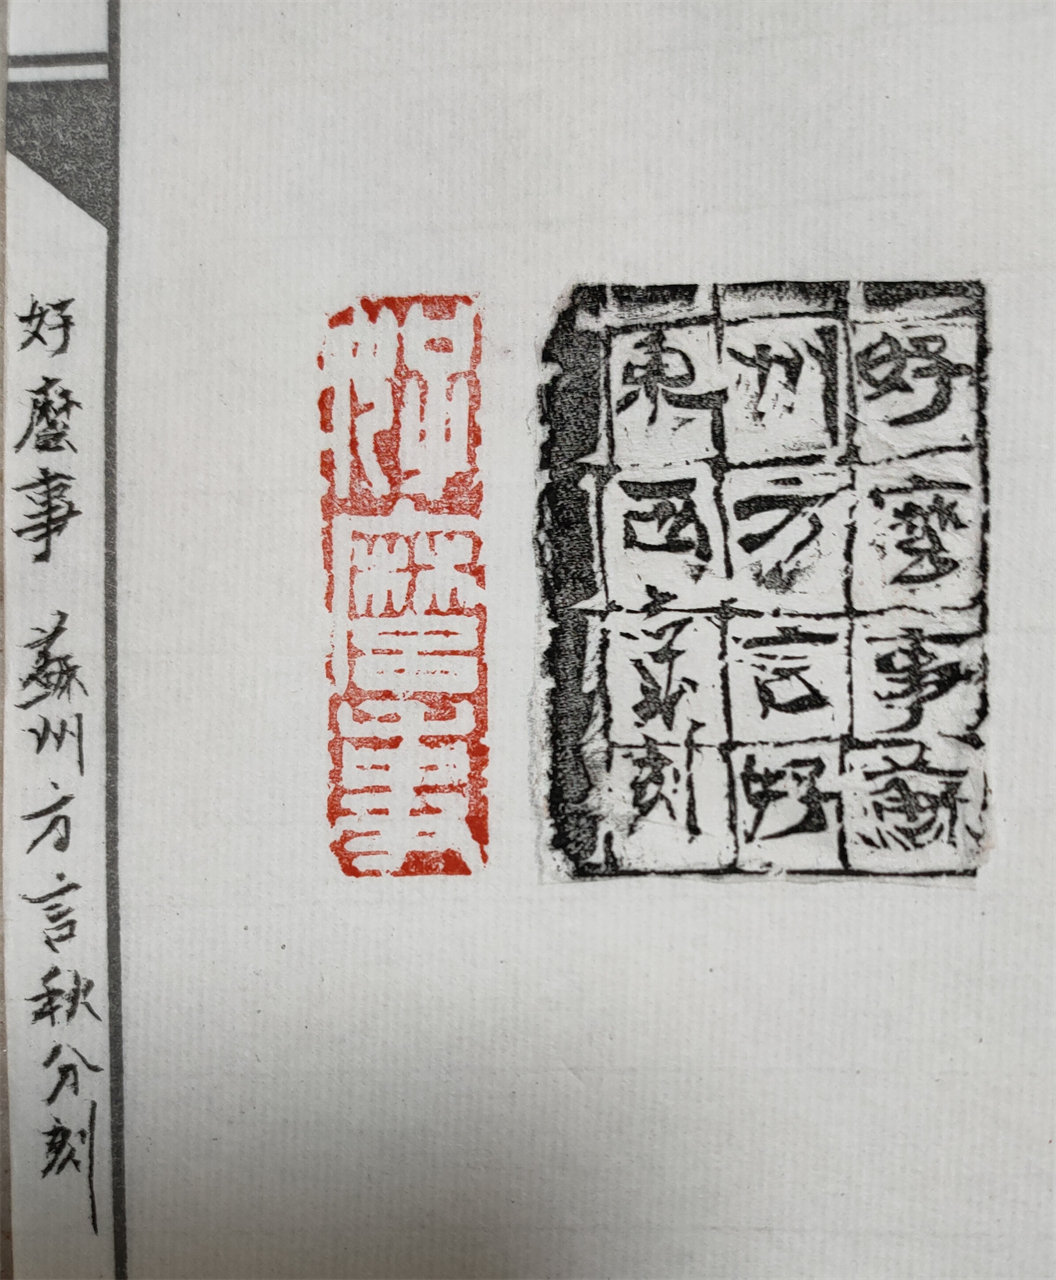 好麼事蘇
州方言好
東西京刻
好麼事
好麼事 蘇州方言秋分刻